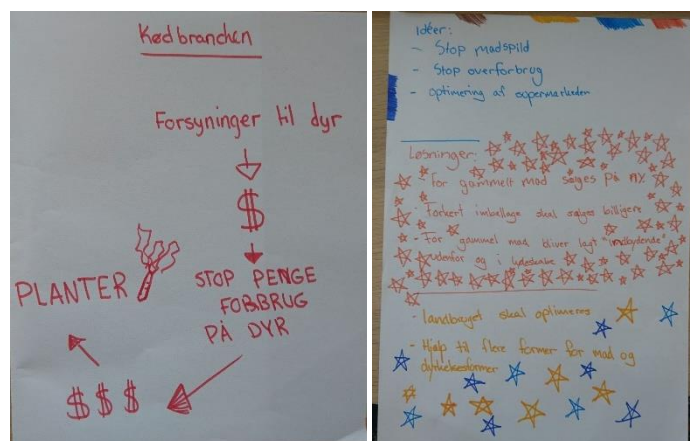 Kødbranchen
Forsyninger til dyr
$
STOP PENGE
FORBRUG
PÅ DYR
$ $ $
PLANTER
Idéer:
- Stop madspild
- Stop overforbrug
- optimering af supermarkeder
Løsninger:
- For gammelt mad sælges på
- Forkert imballage skal sælges billigere
- For gammel mad bliver lagt "indbydende"
udenfor og i
- landbruget skal optimeres
- Hjælp til flere former for mad og
dyrkelsesformer